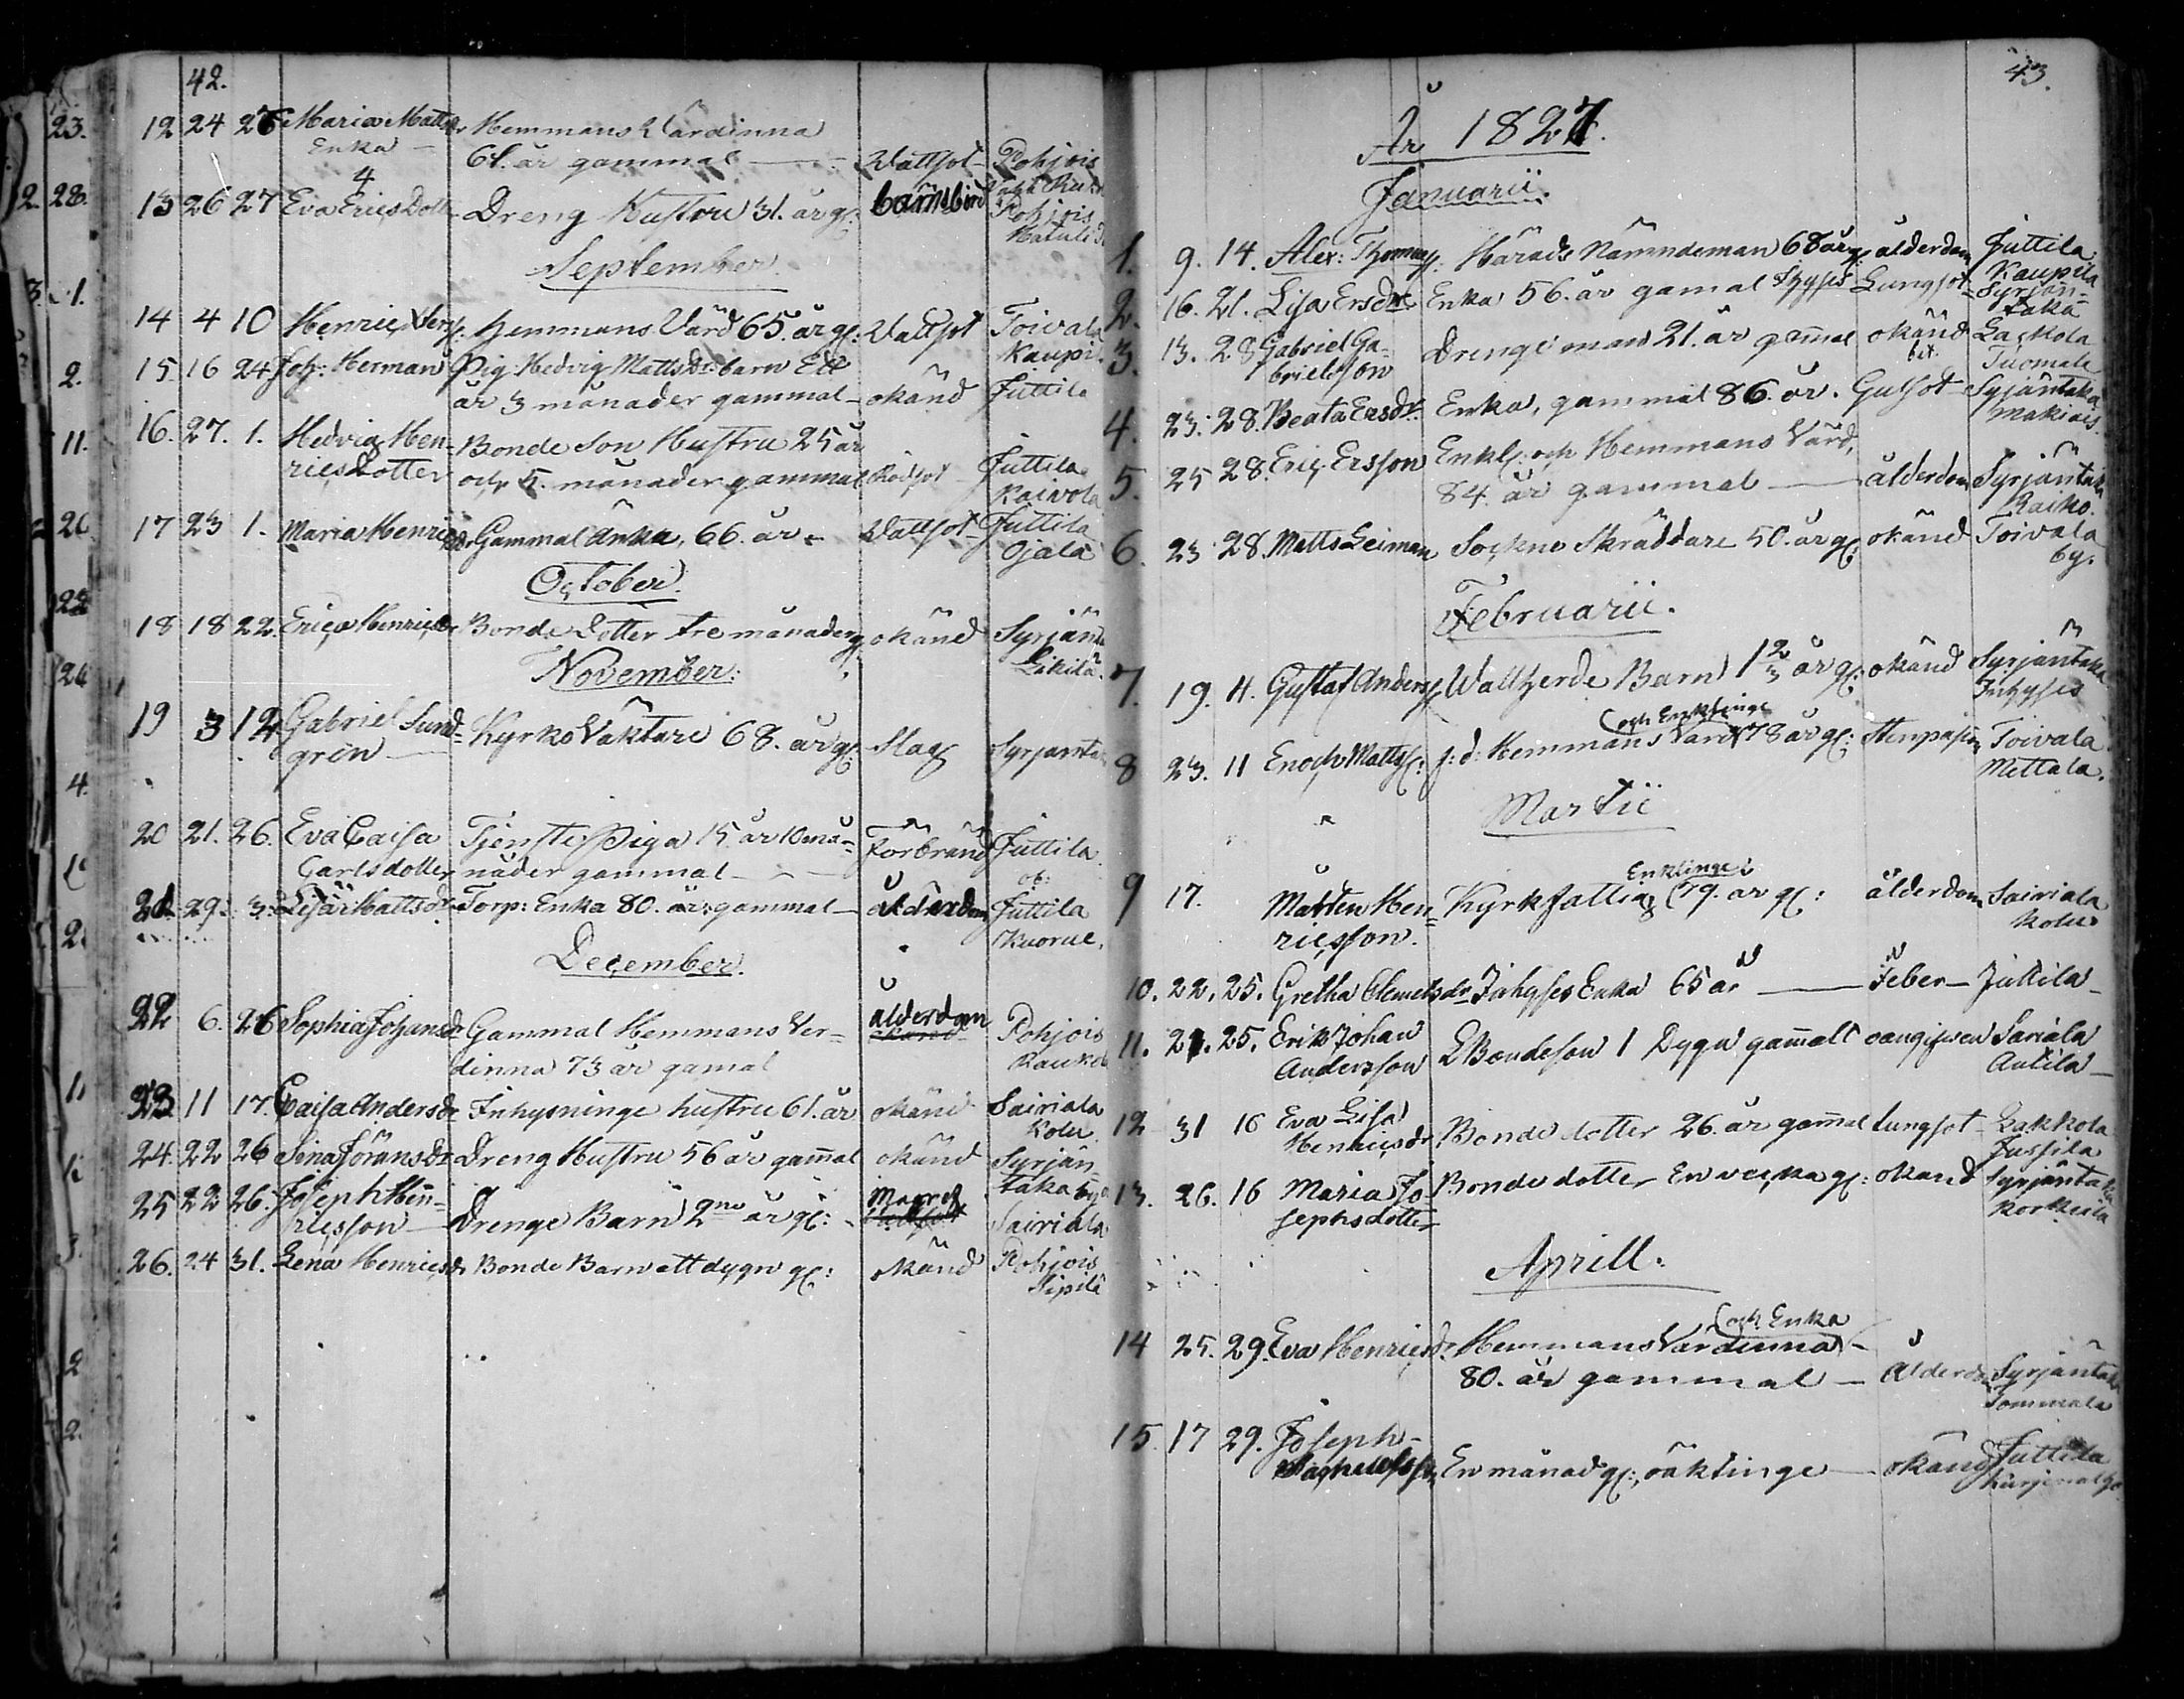 42.
12 24 28 Maria Matts dr Hemmans Värdinna
Enka 61. år gammal Wattsot Pohjois
4
13 26 27 Eva Erics Dott. Dreng Hustru 31. år gl: barnsbörd Pohjois
September
14 4 10 Henric Hemmans Värd 65. år gl: Wattsot Toivala
Kaupil.
15. 16 24 Joh: Herman Pig. Hedvig Matts Drs barn Ett
år 3 månader gammal okänd Juttila
16. 27. 1. Hedvig Hen- Bonde Son Hustru 25 år
rics Dotter och 5. månader gammal Rödsot Juttila
Kaivola
17 23 1. Maria Henricsdr Gammal Änka, 66. år Wattsot Juttila
Ojala
October.
18 18 22. Erica Henricsdr Bonde Dotter tre månader g okänd Syrjänta
Likila.
November:
19 3 12 Gabriel Sund- Kyrko Vaktare 68. år gl: Slag Syrjänta
gren
20 21. 26. Eva Caisa Tjenste Piga 15 år 10 må- Förbränd Juttila
Carlsdotter nader gammal
21. 29. 3. Lisa Mattsdr Torp: Enka 80. år gammal ålderdom Juttila
Kuorue.
December.
22 6. 26 Sophia Johansdr Gammal Hemmans Ver- ålderdom Pohjois
dinna 73 år gamal okänd
23 11 17. Caisa Andersdr Inhysninge hustru 61. år okänd Sairiala
Kolu
24. 22 26 Sina Jöransdr Dreng Hustru 56 år gamal okänd Syrjän-
taka by
25 22 26. Joseph Hen- Drenge Barn 2ne år gl:
ricsson Sairiala
26. 24 31. Lena Henricsdr Bonde Barn ett dygn gl: okänd Pohjois
Sipilä
43.
År 1827.
Januarii.
1. 9. 14. Alex: Thomass: Härads Nämndeman 68 år g: ålderdom Juttila
Kaupila
2. 16. 21. Lisa Ersdr Enka 56. år gamal Lungsot Syrjän-
taka
3. 13. 28 Gabriel Ga- Drenge man 21. år gamal okänd Lackola
brielsson Tuomala
4. 23. 28. Beata Ersdr. Enka, gammal 86. år. Gulsot Syjäntaka
5. 25 28. Eric Ersson Enkl: och Hemmans Värd,
84. år gammal ålderdom Syrjäntaka
Raiko.
6. 23 28. Matts Leiman Sockne Skräddare 50. år gl: okänd Toivala
by.
Februarii.
7. 19. 4. Gustaf Anderss Wallherde Barn 1 2/3 år gl: okänd Syrjäntaka
Inhyses
(och Enklinge
8 23. 11 Enoch Mattss: f: d: Hemmans Värd 78 år gl: Stenpassion Toivala
Mettala.
Martii
Enklinge:
9 17. Mårten Hen- Kyrkfattig (79. år gl: ålderdom Sairiala
ricsson. Kolu
10. 22. 25. Gretha Clemetsdr Inhyses Enka 65 år Feber Juttila
11. 21. 25. Erik Johan Bondeson 1 Dygn gamalt oangifven Sariala
Andersson Antila
12 31 16 Eva Lisa Bonde dotter 26. år gamal lungsot Lakkola
Henricsdr Jussila
13. 26. 16 Maria Jo- Bonde dotter En vecka gl: okänd Syrjäntaka
sephsdotter Korkeila
Aprill.
(och Enka
14 25. 29. Eva Henricsdr. Hemmans Värdinna
80. år gammal Ålderdom Syrjäntaka
Tommala
15. 17 29. Joseph
En månad gl:, oäktinge okänd Juttila